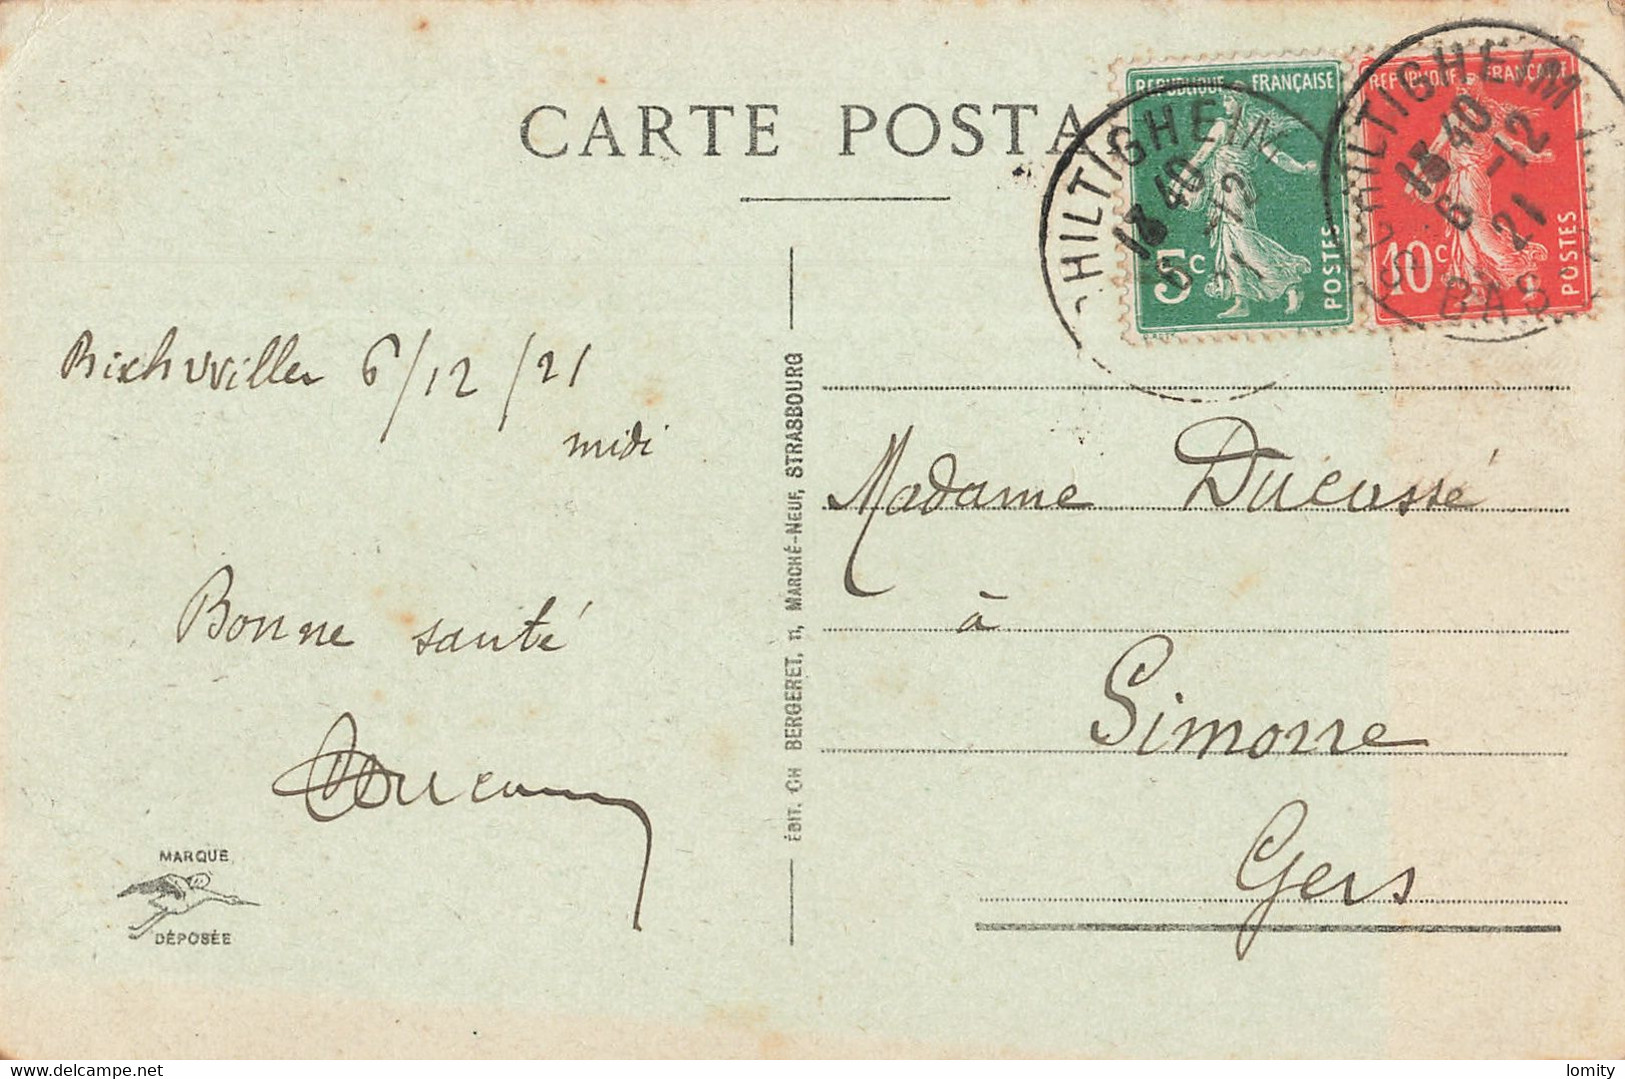 CARTE POSTA
REPUBLIQUE FRANÇAISE
5c
POSTES
REPUBLIQUE FRANÇAISE
10c
POSTES
CHILTIGHEIM
13 40
6 -12
21
SCHILTIGHEIM
13 40
6 -12
21
BAS
6/12/21
midi
Bonne santé
MARQUE
DÉPOSÉE
ÉDIT. CH BERGERET, 11, MARCHÉ-NEUF, STRASBOURG
Madame Ducassé
à
Simorre
Gers
www.delcampe.net
lomity